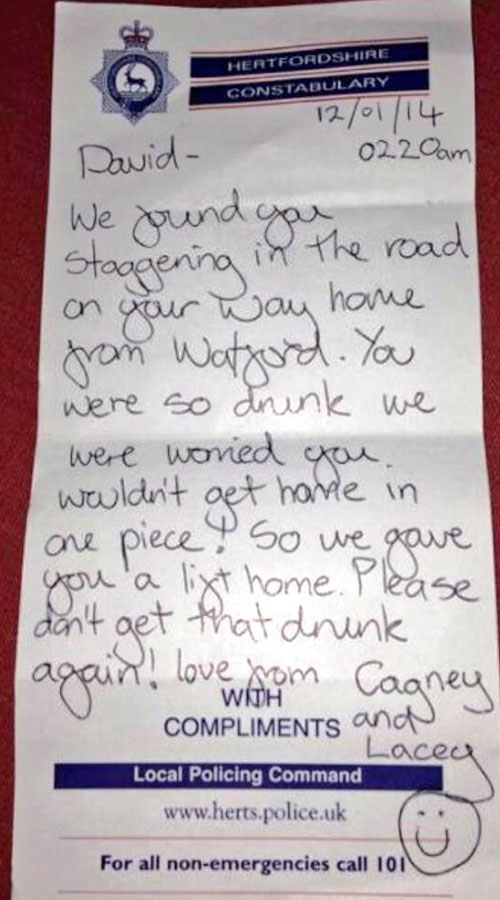 HERTFORDSHIRE
CONSTABULARY
12/01/14
0220am
David-
We found you
staggering in the road
on your way home
from Watford. You
were so drunk we
were worried you
wouldn't get home in
one piece! So we gave
you a lift home. Please
don't get that drunk
again! love from Cagney
and
Lacey
WITH
COMPLIMENTS
Local Policing Command
www.herts.police.uk
For all non-emergencies call 101